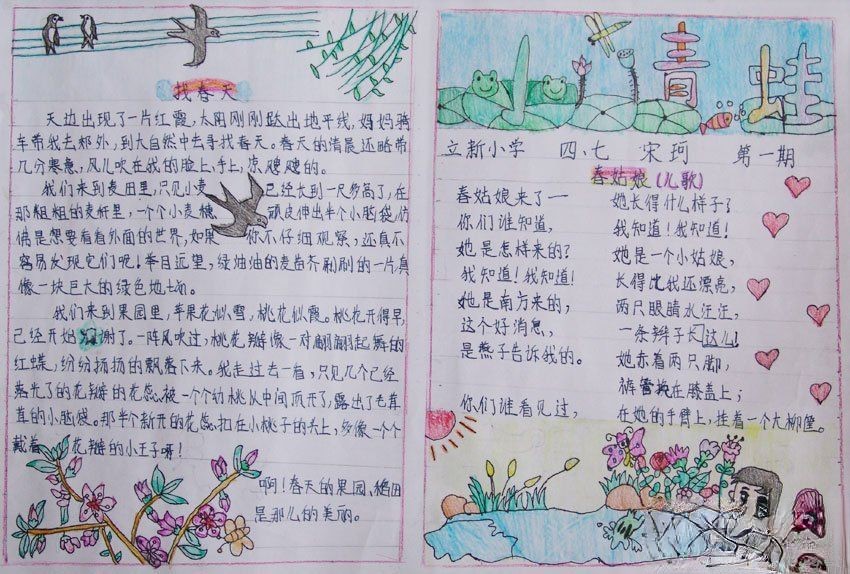 找春天
天边出现了一片红霞,太阳刚刚跃出地平线,妈妈骑
车带我去郊外,到大自然中去寻找春天。春天的清晨还略带
几分寒意,风儿吹在我的脸上、手上,凉飕飕的。
我们来到麦田里,只见小麦已经长到一尺多高了,在
那粗粗的麦秆里,一个个小麦穗顽皮伸出半个小脑袋,仿
佛是想要看看外面的世界,如果你不仔细观察,还真不
容易发现它们呢!举目远望,绿油油的麦苗齐刷刷的一片,真
像一块巨大的绿色地毯。
我们来到果园里,苹果花似雪,桃花似霞。桃花开得早,
已经开始凋谢了。一阵风吹过,桃花瓣像一对翩翩起舞的
红蝶,纷纷扬扬的飘落下来。我走过去一看,只见几个已经
落光了的花瓣的花蕊,被一个个幼桃从中间顶开了,露出了毛茸
茸的小脑袋。那半个新开的花蕊,扣在小桃子的头上,多像一个个
戴着花瓣的小王子呀!
啊!春天的果园、稻田
是那么的美丽。
青蛙
立新小学 四、七 宋珂 第一期
春姑娘(儿歌)
春姑娘来了——
你们谁知道,
她是怎样来的?
我知道!我知道!
她是南方来的,
这个好消息,
是燕子告诉我的。
你们谁看见过,
她长得什么样子?
我知道!我知道!
她是一个小姑娘,
长得比我还漂亮,
两只眼睛水汪汪,
一条辫子长这儿!
她赤着两只脚,
裤管挽在膝盖上;
在她的手臂上,挂着一个大柳筐。